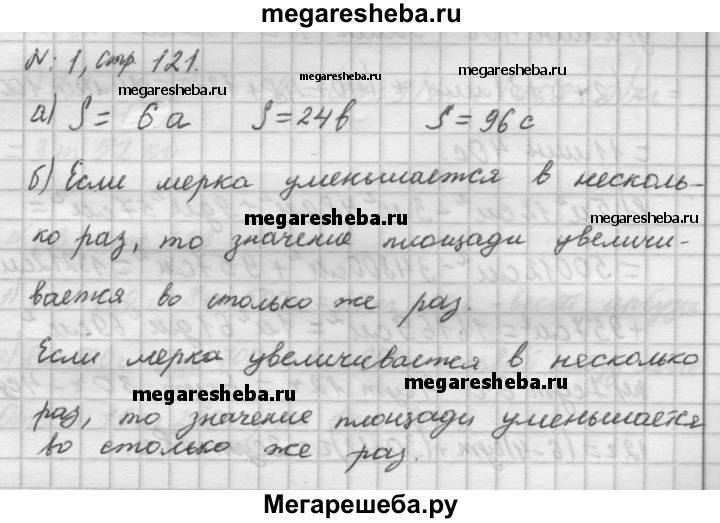 megaresheba.ru
N: 1, стр. 121.
megaresheba.ru
megaresheba.ru
megaresheba.ru
а) S = 6a S = 24b S = 96c
б) Если мерка уменьшается в несколь-
megaresheba.ru
megaresheba.ru
ко раз, то значение площади увеличи-
вается во столько же раз.
Если мерка увеличивается в несколько
megaresheba.ru
megaresheba.ru
раз, то значение площади уменьшается
во столько же раз.
Мегарешеба.ру